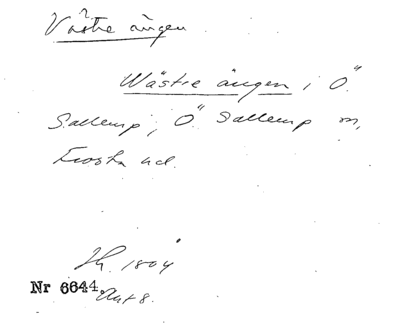 Västre ängen
Wästre ängen i Ö.
Sallerup, Ö. Sallerup sn,
Frosta hd.
Sk. 1804
Nr 6644. Akt 8.